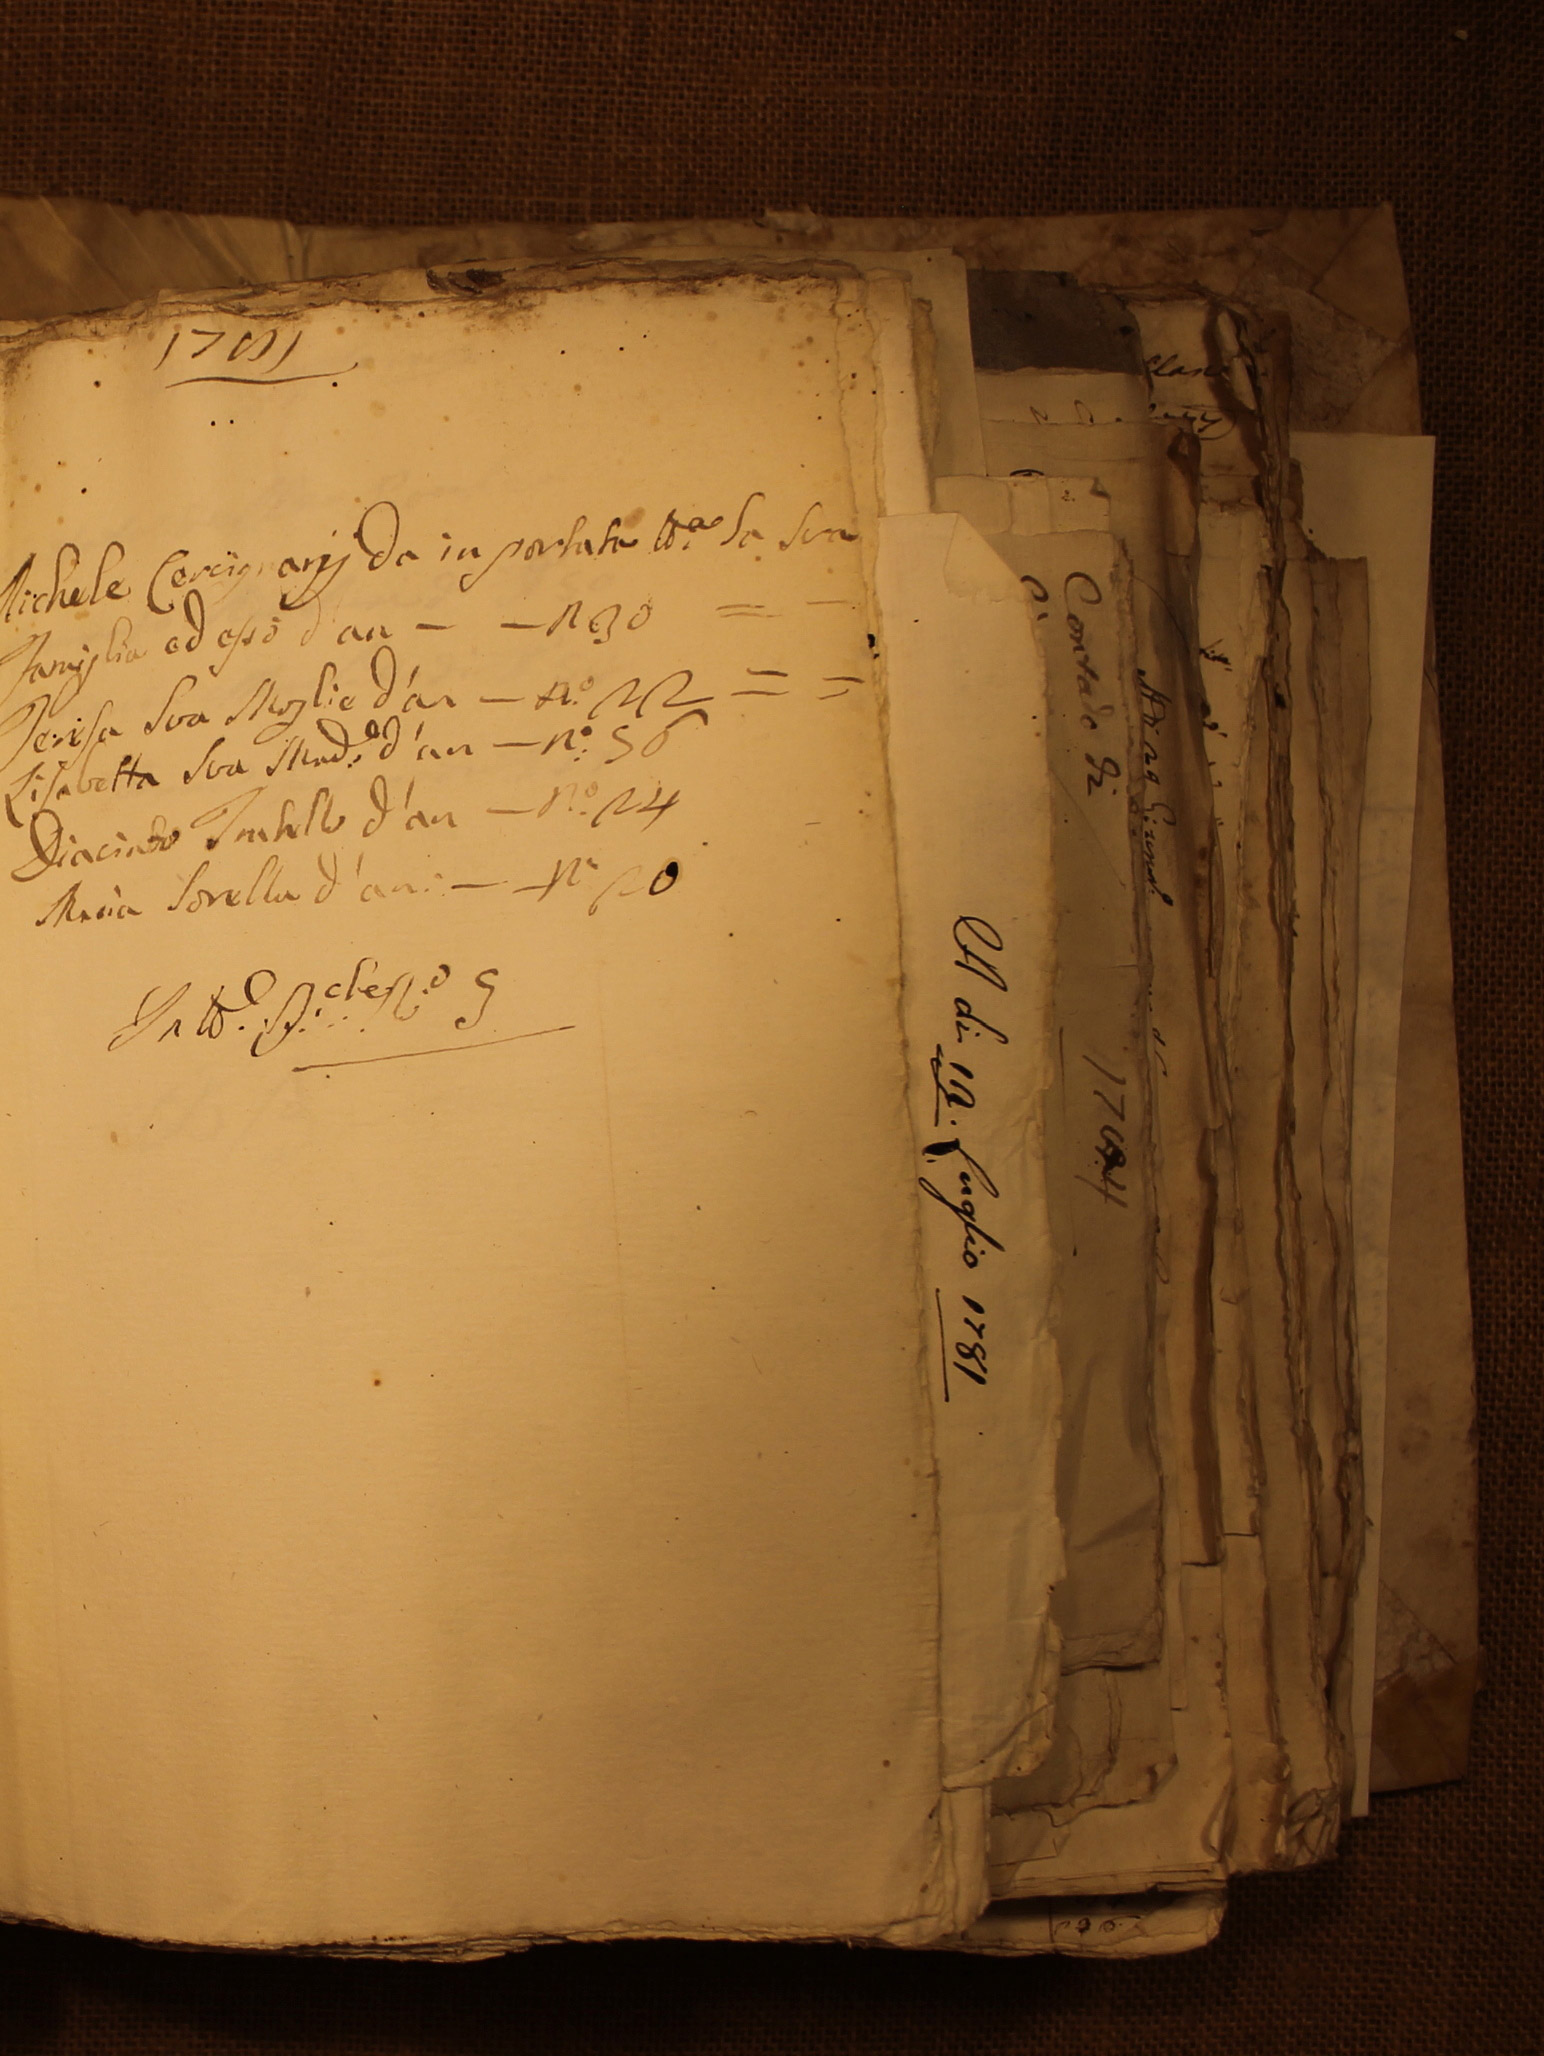 1781
Michele Cercignanj da in portata tta la sua
Famiglia ed esso d'an — — N 30
Teresa sua Moglie d'an — No. 22
Lisabetta sua Mad.e d'an — No. 56
Diacinto Fratello d'an — No. 24
Maria Sorella d'an: — — No 20
In tto. No 5
A dì 12. Luglio 1781
Contado di
1784